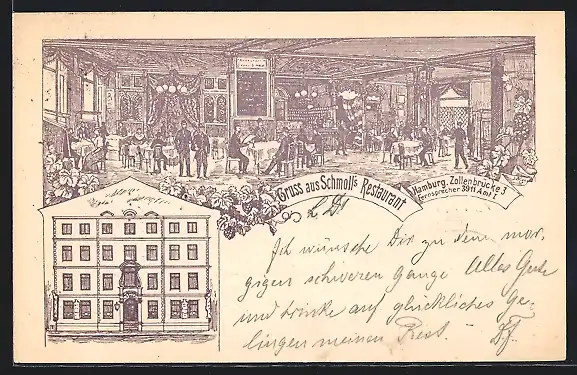 Gruss aus Schmoll's Restaurant
Hamburg, Zollenbrücke 3
Fernsprecher 3911 Amt I
Ich wünsche Dir zu dem mor-
gigen schweren Gange Alles Gute
und trinke auf glückliches Ge-
lingen meinen Rest.